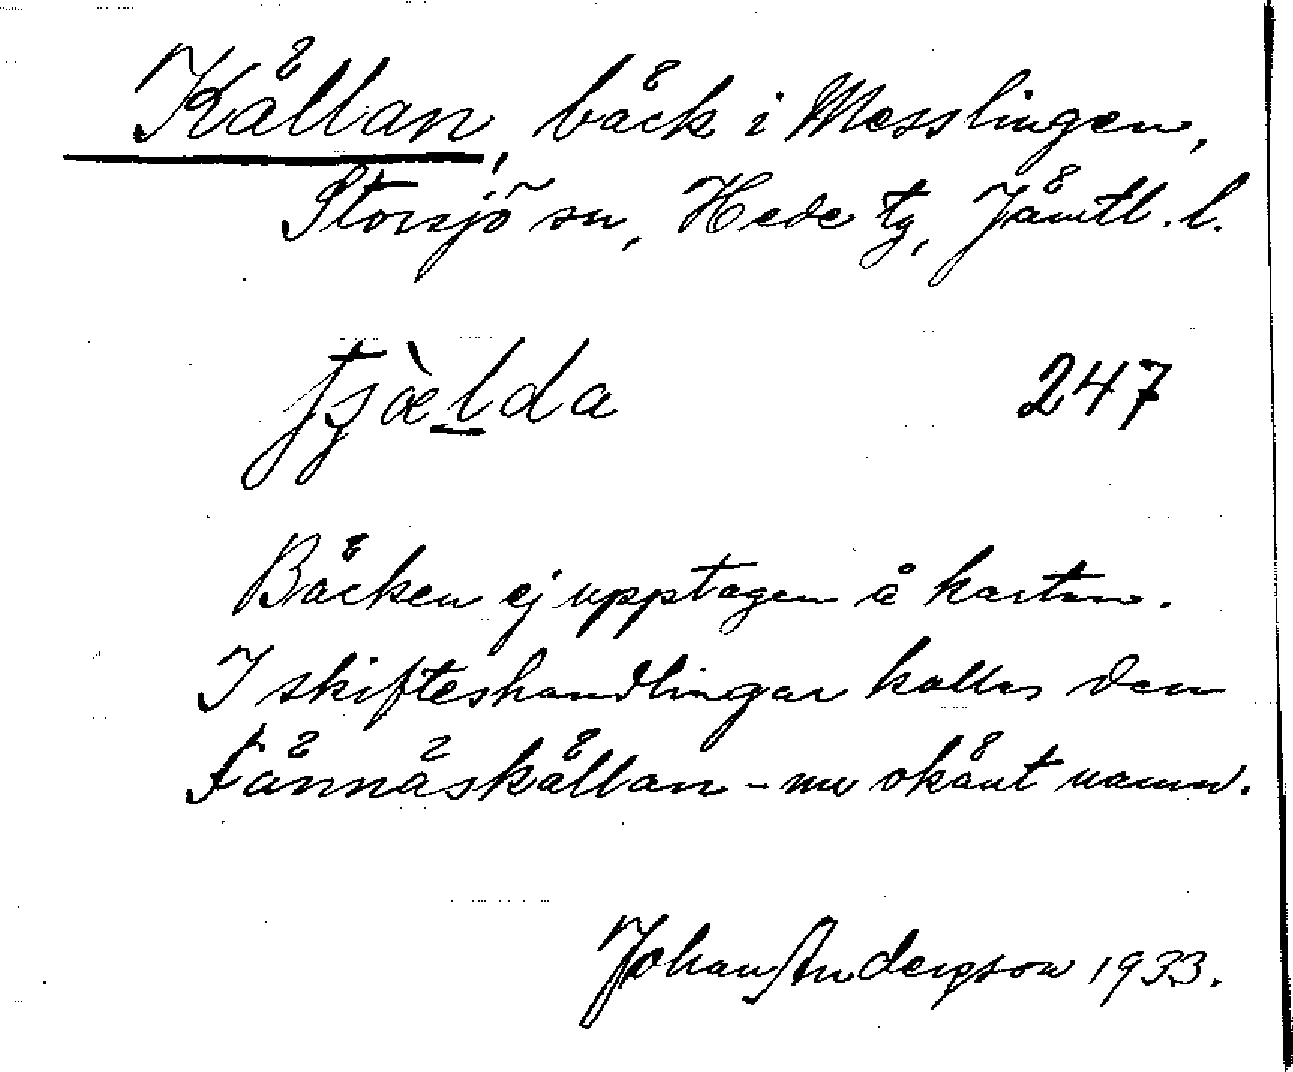 Källan, bäck i Messlingen,
Storsjö sn, Hede tg, Jämtl. l.
ʃʒæ̀lda 247
Bäcken ej upptagen å kartan.
I skifteshandlingar kallas den
Fännäskällan - nu okänt namn.
Johan Andersson 1933.